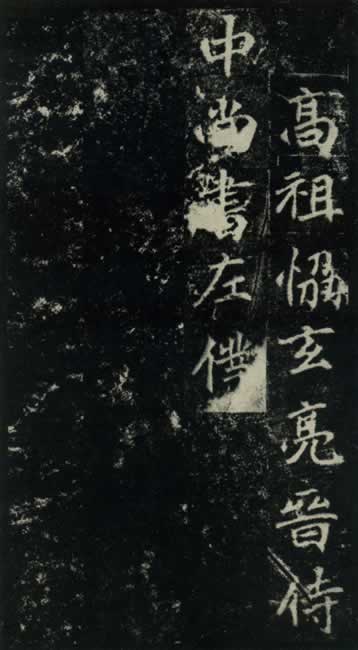 高祖恊玄亮晉侍
中尚書左僕